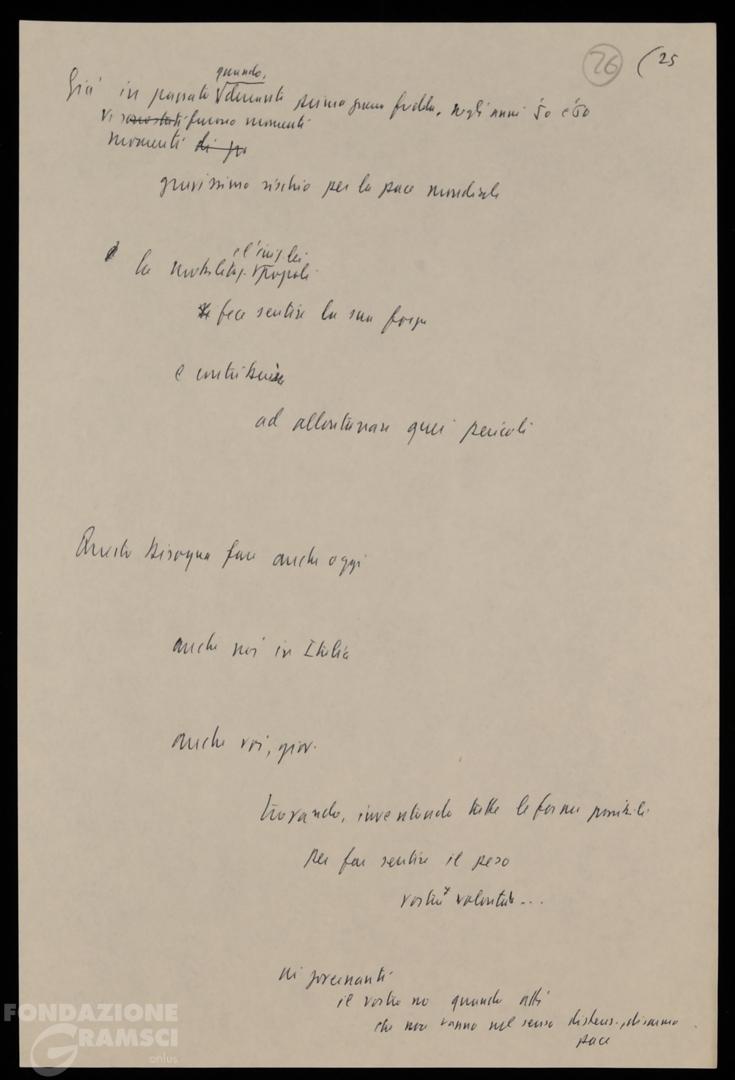 26 (25
quando,
Già in passato √ durante prima guerra fredda, negli anni 50 e 60
vi sono stati furono momenti
momenti di
gravissimo rischio per la pace mondiale
la mobilitaz. √ popoli
fece sentire la sua forza
e contribuì
ad allontanare quei pericoli
Questo bisogna fare anche oggi
anche noi in Italia
anche voi, giov.
trovando, inventando tutte le forme possibili
per far sentire il peso
vostra volontà...
ai governanti
il vostro no quando atti
che non vanno nel senso distens., disarmo
pace
FONDAZIONE
GRAMSCI
onlus